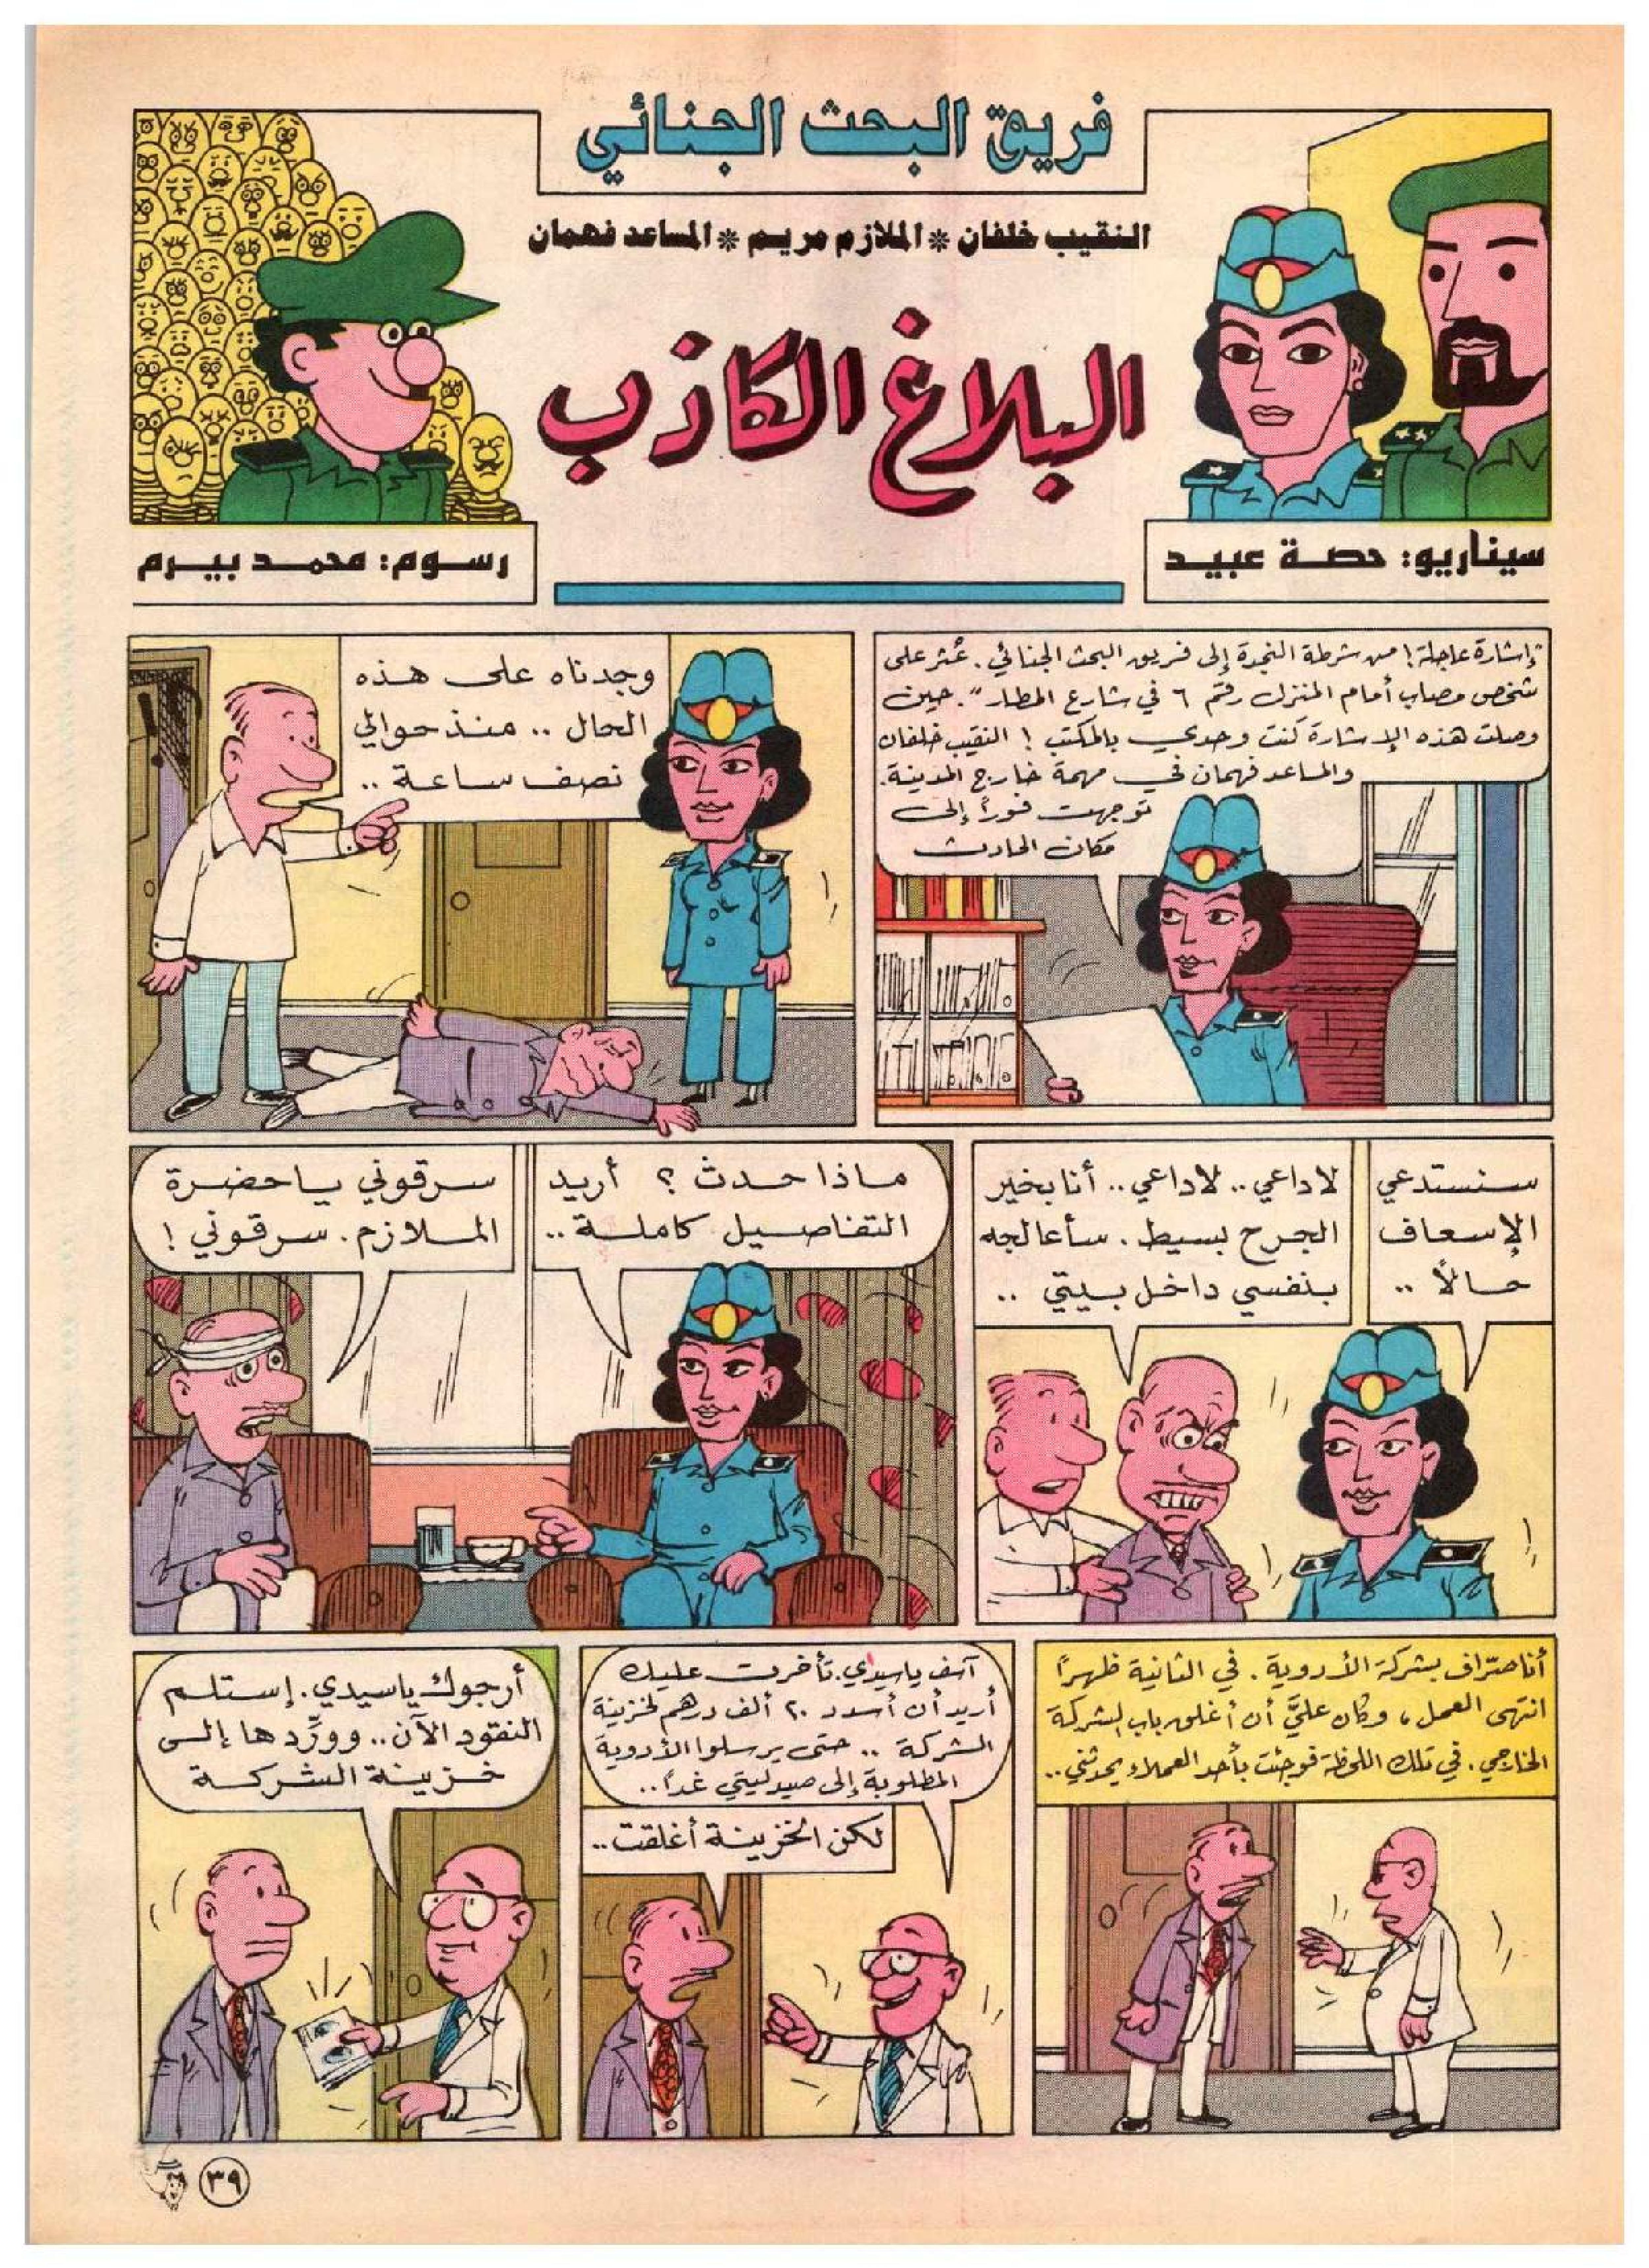 فريق البحث الجنائي
النقيب خلفان * الملازم مريم * المساعد فهمان
البلاغ الكاذب
سيناريو: حصة عبيد
رسوم: محمد بيرم
"إشارة عاجلة! من شرطة النجدة إلى فريق البحث الجنائي. عُثر على
شخص مصاب أمام المنزل رقم ٦ في شارع المطار". حين
وصلت هذه الإشارة كنت وحدي بالمكتب! النقيب خلفان
والمساعد فهمان في مهمة خارج المدينة.
توجهت فوراً إلى
مكان الحادث
وجدناه على هذه
الحال .. منذ حوالي
نصف ساعة ..
سنستدعي
الإسعاف
حالاً ..
لا داعي .. لا داعي .. أنا بخير
الجرح بسيط. سأعالجه
بنفسي داخل بيتي ..
ماذا حدث ؟ أريد
التفاصيل كاملة ..
سرقوني يا حضرة
الملازم. سرقوني !
أنا صرّاف بشركة الأدوية. في الثانية ظهراً
انتهى العمل، وكان عليَّ أن أغلق باب الشركة
الخارجي. في تلك اللحظة فوجئت بأحد العملاء يحدثني ..
آسف يا سيدي. تأخرت عليك
أريد أن أسدد ٢٠ ألف درهم لخزينة
الشركة .. حتى يرسلوا الأدوية
المطلوبة إلى صيدليتي غداً ..
لكن الخزينة أغلقت ..
أرجوك يا سيدي. إستلم
النقود الآن .. وورِّدها إلى
خزينة الشركة
٣٩